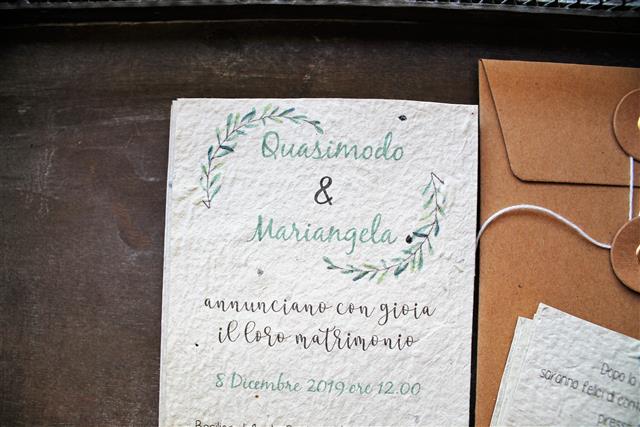 Quasimodo
&
Mariangela
annunciano con gioia
il loro matrimonio
8 Dicembre 2019 ore 12.00
Dopo la
saranno felici di